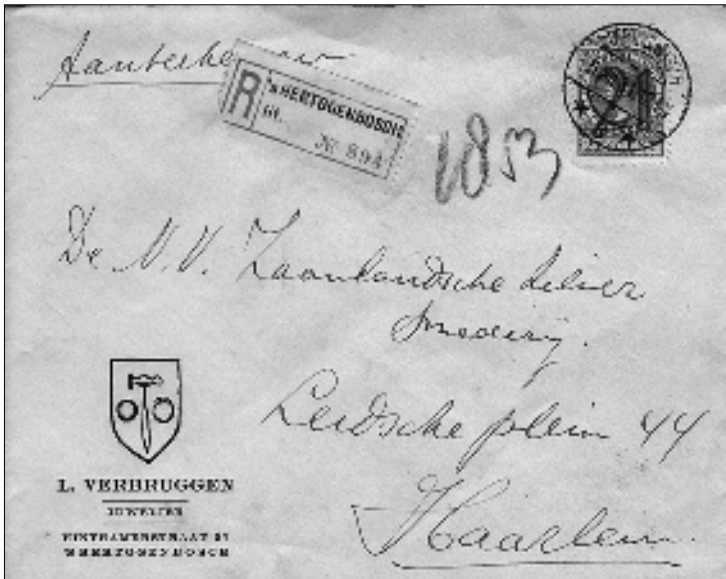 Aantekenen
R 'sHERTOGENBOSCH
Nº 894
21
1853
De N.V. Zaanlandsche Zilver
Smederij.
Leidsche plein 44
Haarlem.
L. VERBRUGGEN
JUWELIER
HINTHAMERSTRAAT
'S HERTOGENBOSCH